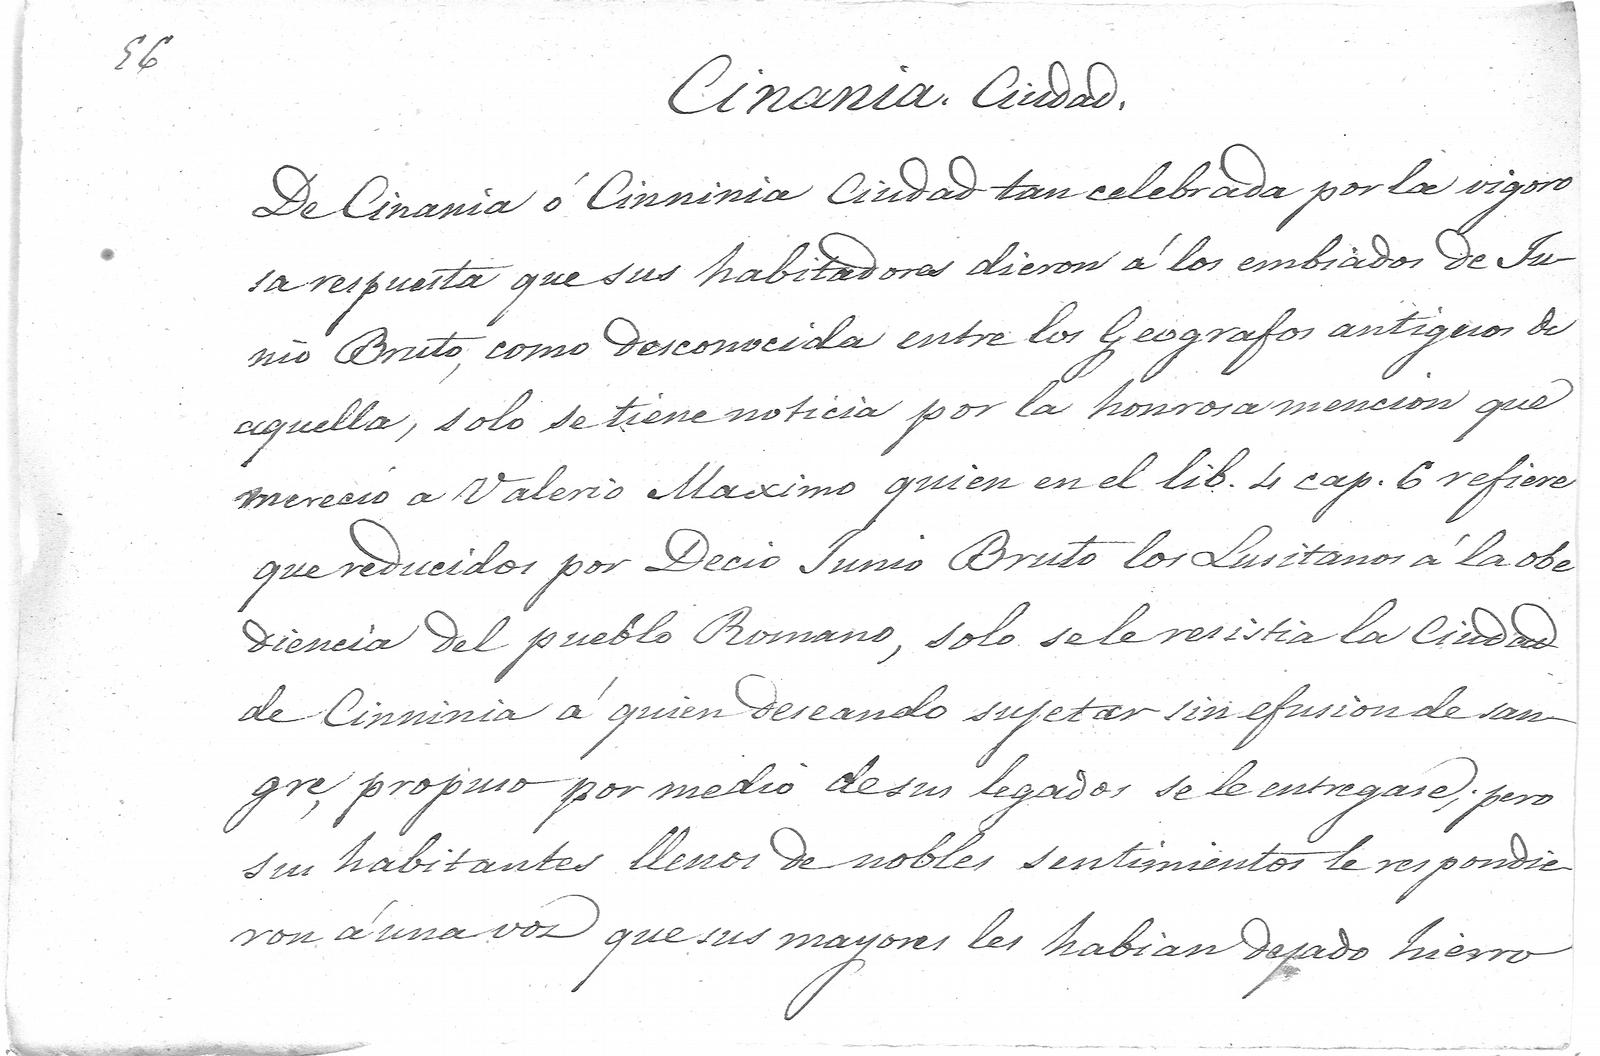 56
Cinania. Ciudad.
De Cinania ó Cinninia Ciudad tan celebrada por la vigoro
sa respuesta que sus habitadores dieron á los embiados de Ju-
nio Bruto, como desconocida entre los Geografos antiguos de
aquella, solo se tiene noticia por la honrosa mencion que
mereció a Valerio Maximo quien en el lib. 4 cap. 6 refiere
que reducidos por Decio Junio Bruto los Lusitanos á la obe
diencia del pueblo Romano, solo se le resistia la Ciudad
de Cinninia á quien deseando sujetar sin efusion de san-
gre, propuso por medio de sus legados se le entregase; pero
sus habitantes llenos de nobles sentimientos le respondie-
ron á una voz que sus mayores les habian dejado hierro